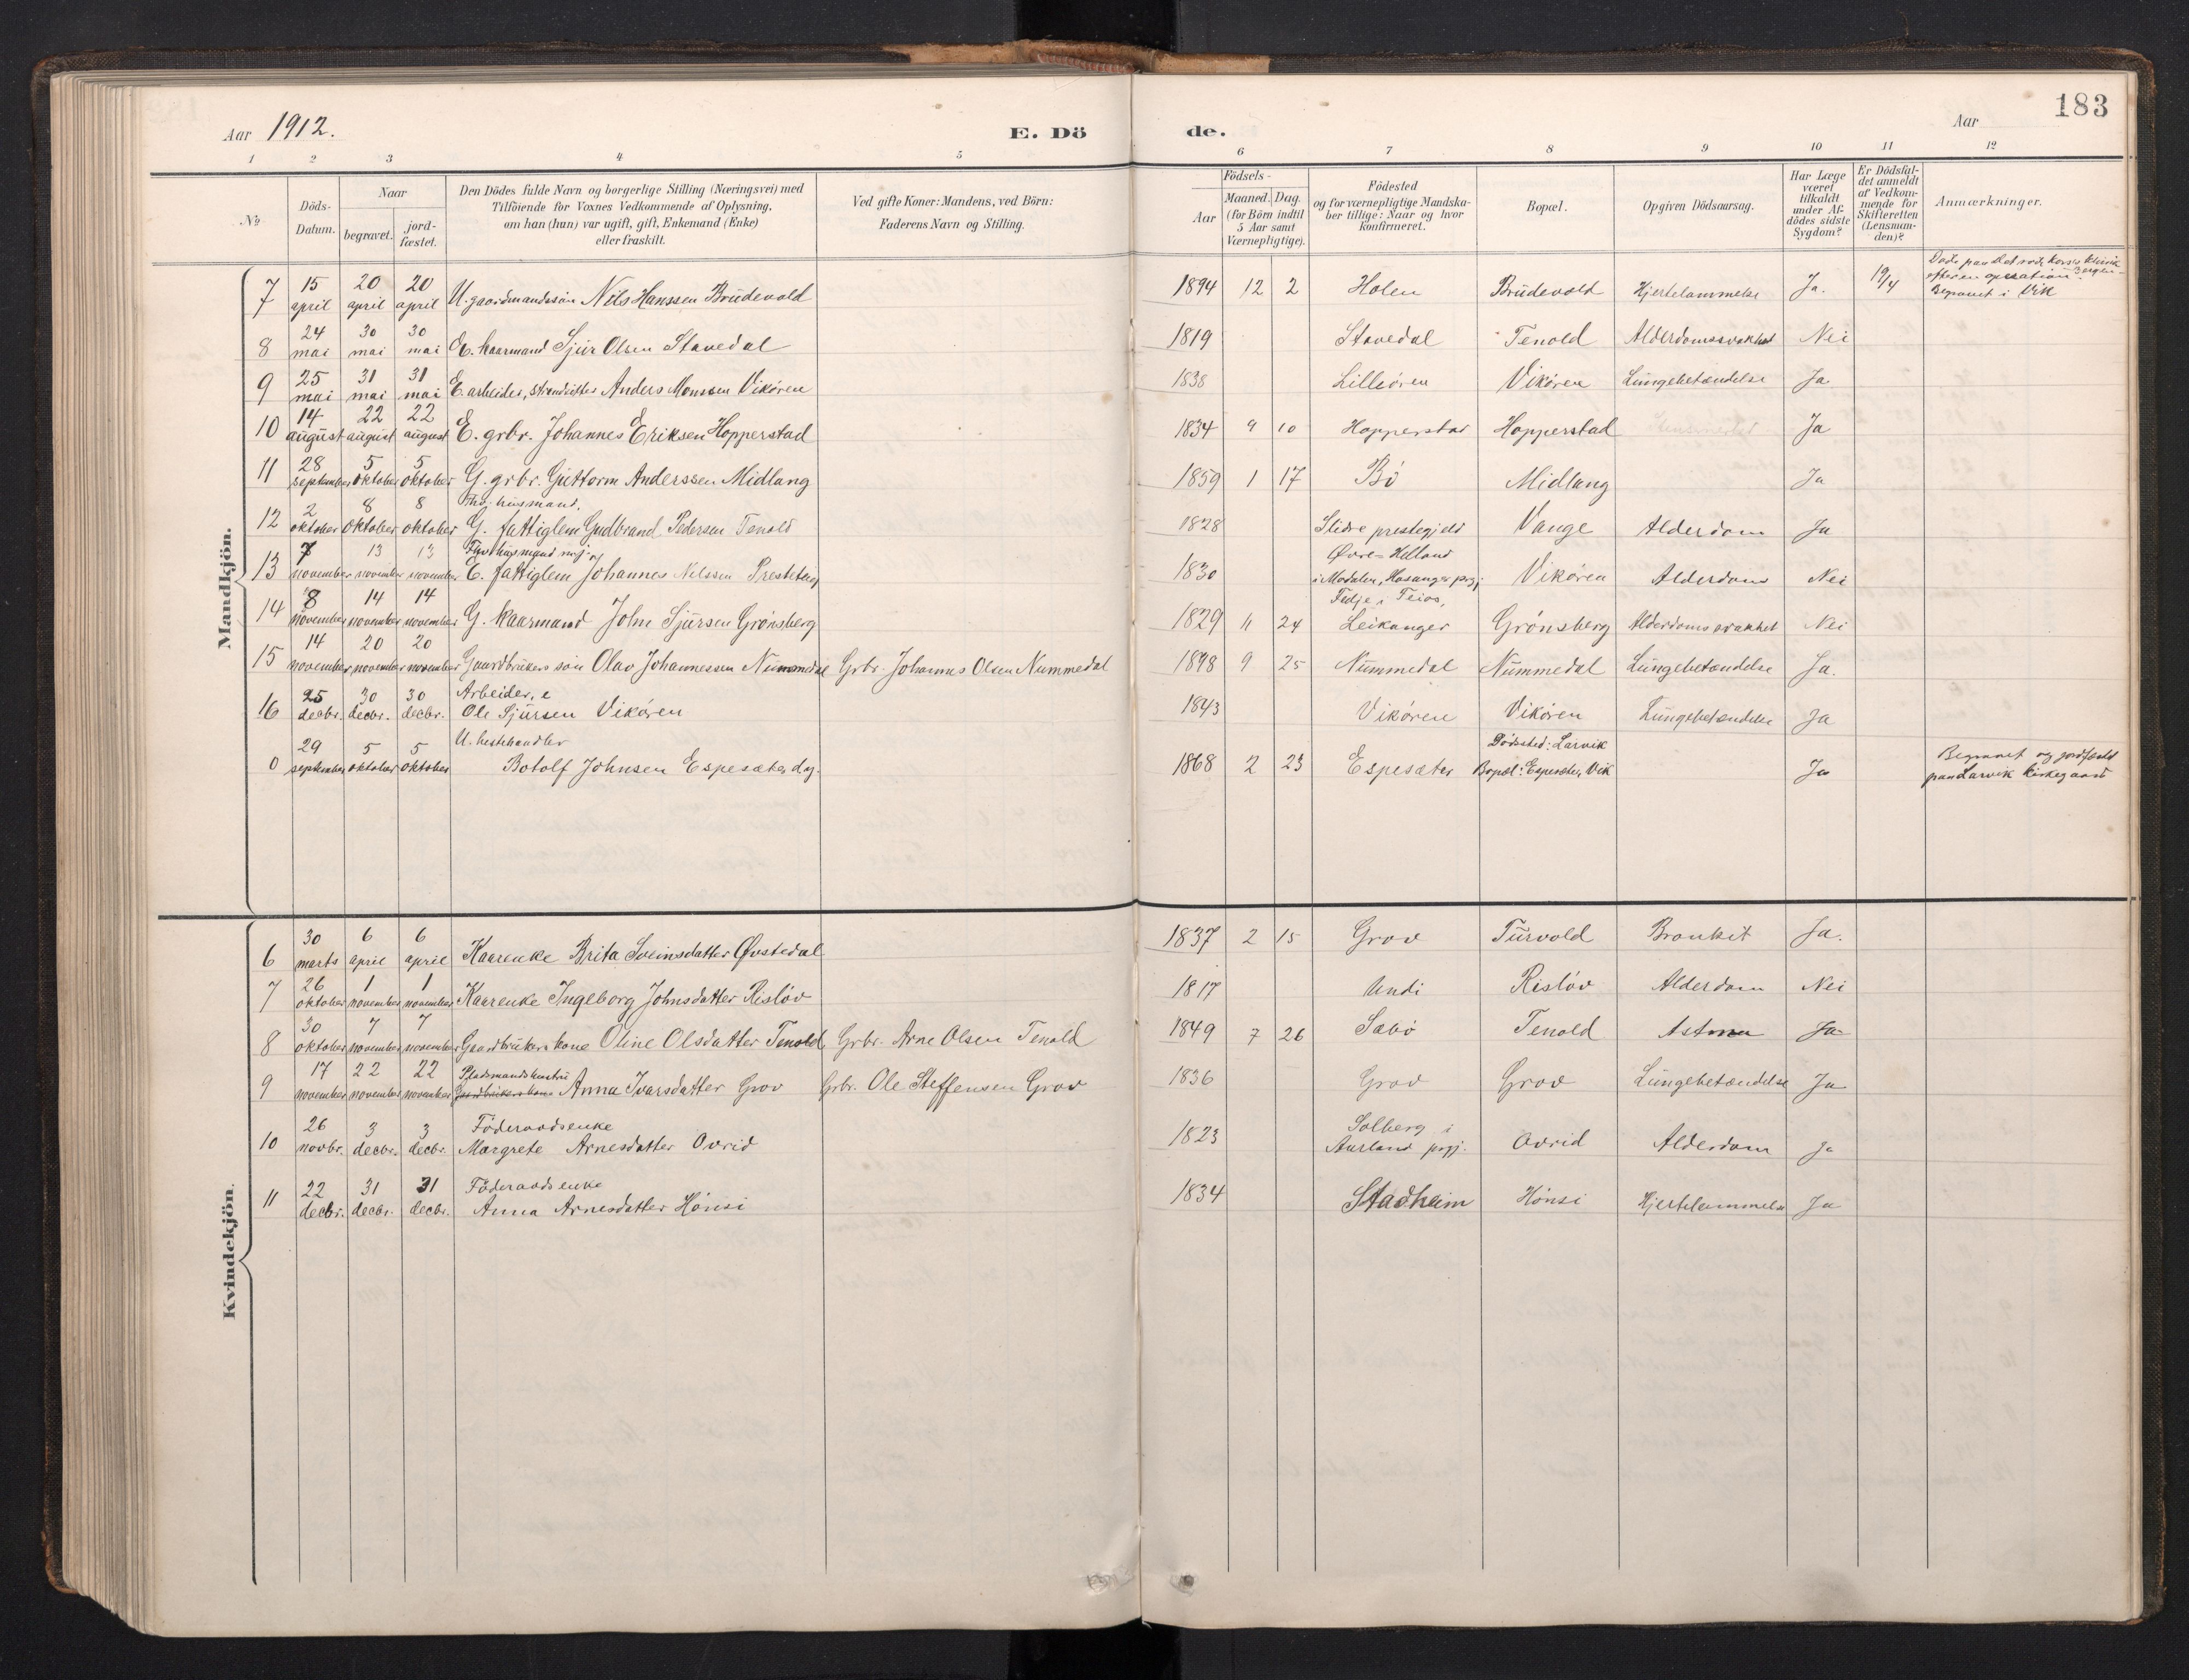 183
Aar 1912.
E. Dö de.
Aar
1 2 3 4 5 6 7 8 9 10 11 12
No
Döds-Datum.
Naar
begravet.
jord-fæstet.
Den Dödes fulde Navn og borgerlige Stilling (Næringsvei) med
Tilföiende for Voxnes Vedkommende af Oplysning,
om han (hun) var ugift, gift, Enkemand (Enke)
eller fraskilt.
Ved gifte Koner: Mandens, ved Börn:
Faderens Navn og Stilling.
Födsels-
Aar
Maaned. Dag.
(for Börn indtil
5 Aar samt
Værnepligtige).
Födested
og for værnepligtige Mandska-
ber tillige: Naar og hvor
konfirmeret.
Bopæl.
Opgiven Dödsaarsag.
Har Læge
været
tilkaldt
under Af-
dödes sidste
Sygdom?
Er Dödsfal-
det anmeldt
af Vedkom-
mende for
Skifteretten
(Lensman-
den)?
Anmærkninger.
Mandkjön.
7 15 april 20 april 20 april U. gaardmandssön Nils Hanssen Brüdevold 1894 12 2 Holen Brüdevold Hjertelammelse Ja. 19/4 Döde paa Det rode korses klinik Bergen efter en operation. Begravet i Vik
8 24 mai 30 mai 30 mai E. kaarmand Sjür Olsen Stavedal 1819 Stavedal Tenold Alderdomssvakhet Nei
9 25 mai 31 mai 31 mai E. arbeider, strandsitter Anders Monssen Vikören 1838 Lilleören Vikören Lüngebetændelse Ja
10 14 august 22 august 22 august E. grbr. Johannes Eriksen Hopperstad 1834 9 10 Hopperstad Hopperstad Ja
11 28 september 5 oktober 5 oktober G. grbr. Güttorm Anderssen Midlang 1859 1 17 Bö Midlang Ja
12 2 oktober 8 oktober 8 oktober Fhv. husmand, G. fattiglem Gudbrand Pedersen Tenold 1828 Slidre prestegjeld Vange Alderdom Ja
13 7 november 13 november 13 november Fhv. husmand E. fattiglem Johannes Nilssen Presteteig 1830 Övre-Helland i Modalen, Hosanger prgj. Vikören Alderdom Nei
14 8 november 14 november 14 november G. kaarmand John Sjürsen Grönsberg 1829 11 24 Fedje i Leikanger Grönsberg Alderdomssvakhet Nei
15 14 november 20 november 20 november Gaardbrükers sön Olav Johannessen Nümmedal Grbr. Johannes Olsen Nummedal 1898 9 25 Nümmedal Nümmedal Lüngebetændelse Ja.
16 25 decbr. 30 decbr. 30 decbr. Arbeider, e Ole Sjürsen Vikören 1843 Vikören Vikören Lüngebetændelse Ja
0 29 september 5 oktober 5 oktober U. hestehandler Botolf Johnsen Espesæter, dy. 1868 2 23 Espesæter Dödssted: Larvik Bopæl: Espesæter, Vik Ja Begravet og jordfæstet paa Larvik kirkegaard
Kvindekjön.
6 30 marts 6 april 6 april Kaarenke Brita Sveinsdatter Övstedal 1837 2 15 Grov Türvold Bronkit Ja.
7 26 oktober 1 november 1 november Kaarenke Ingeborg Johnsdatter Rislöv 1817 Undi Rislöv Alderdom Nei
8 30 oktober 7 november 7 november Gaardbrükers kone Oline Olsdatter Tenold Grbr. Arne Olsen Tenold 1849 7 26 Sæbö Tenold Astma Ja
9 17 november 22 november 22 november Pladsmandshustrü Gaardbrükers kone Anna Ivarsdatter Grov Grbr. Ole Steffensen Grov 1836 Grov Grov Lüngebetændelse Ja
10 26 novbr. 3 decbr. 3 decbr. Föderaadsenke Margrete Arnesdatter Ovrid 1823 Solberg i Aurland prgj. Ovrid Alderdom Ja
11 22 decbr. 31 decbr. 31 decbr. Föderaadsenke Anna Arnesdatter Hönsi 1834 Stadheim Hönsi Hjertelammelse Ja